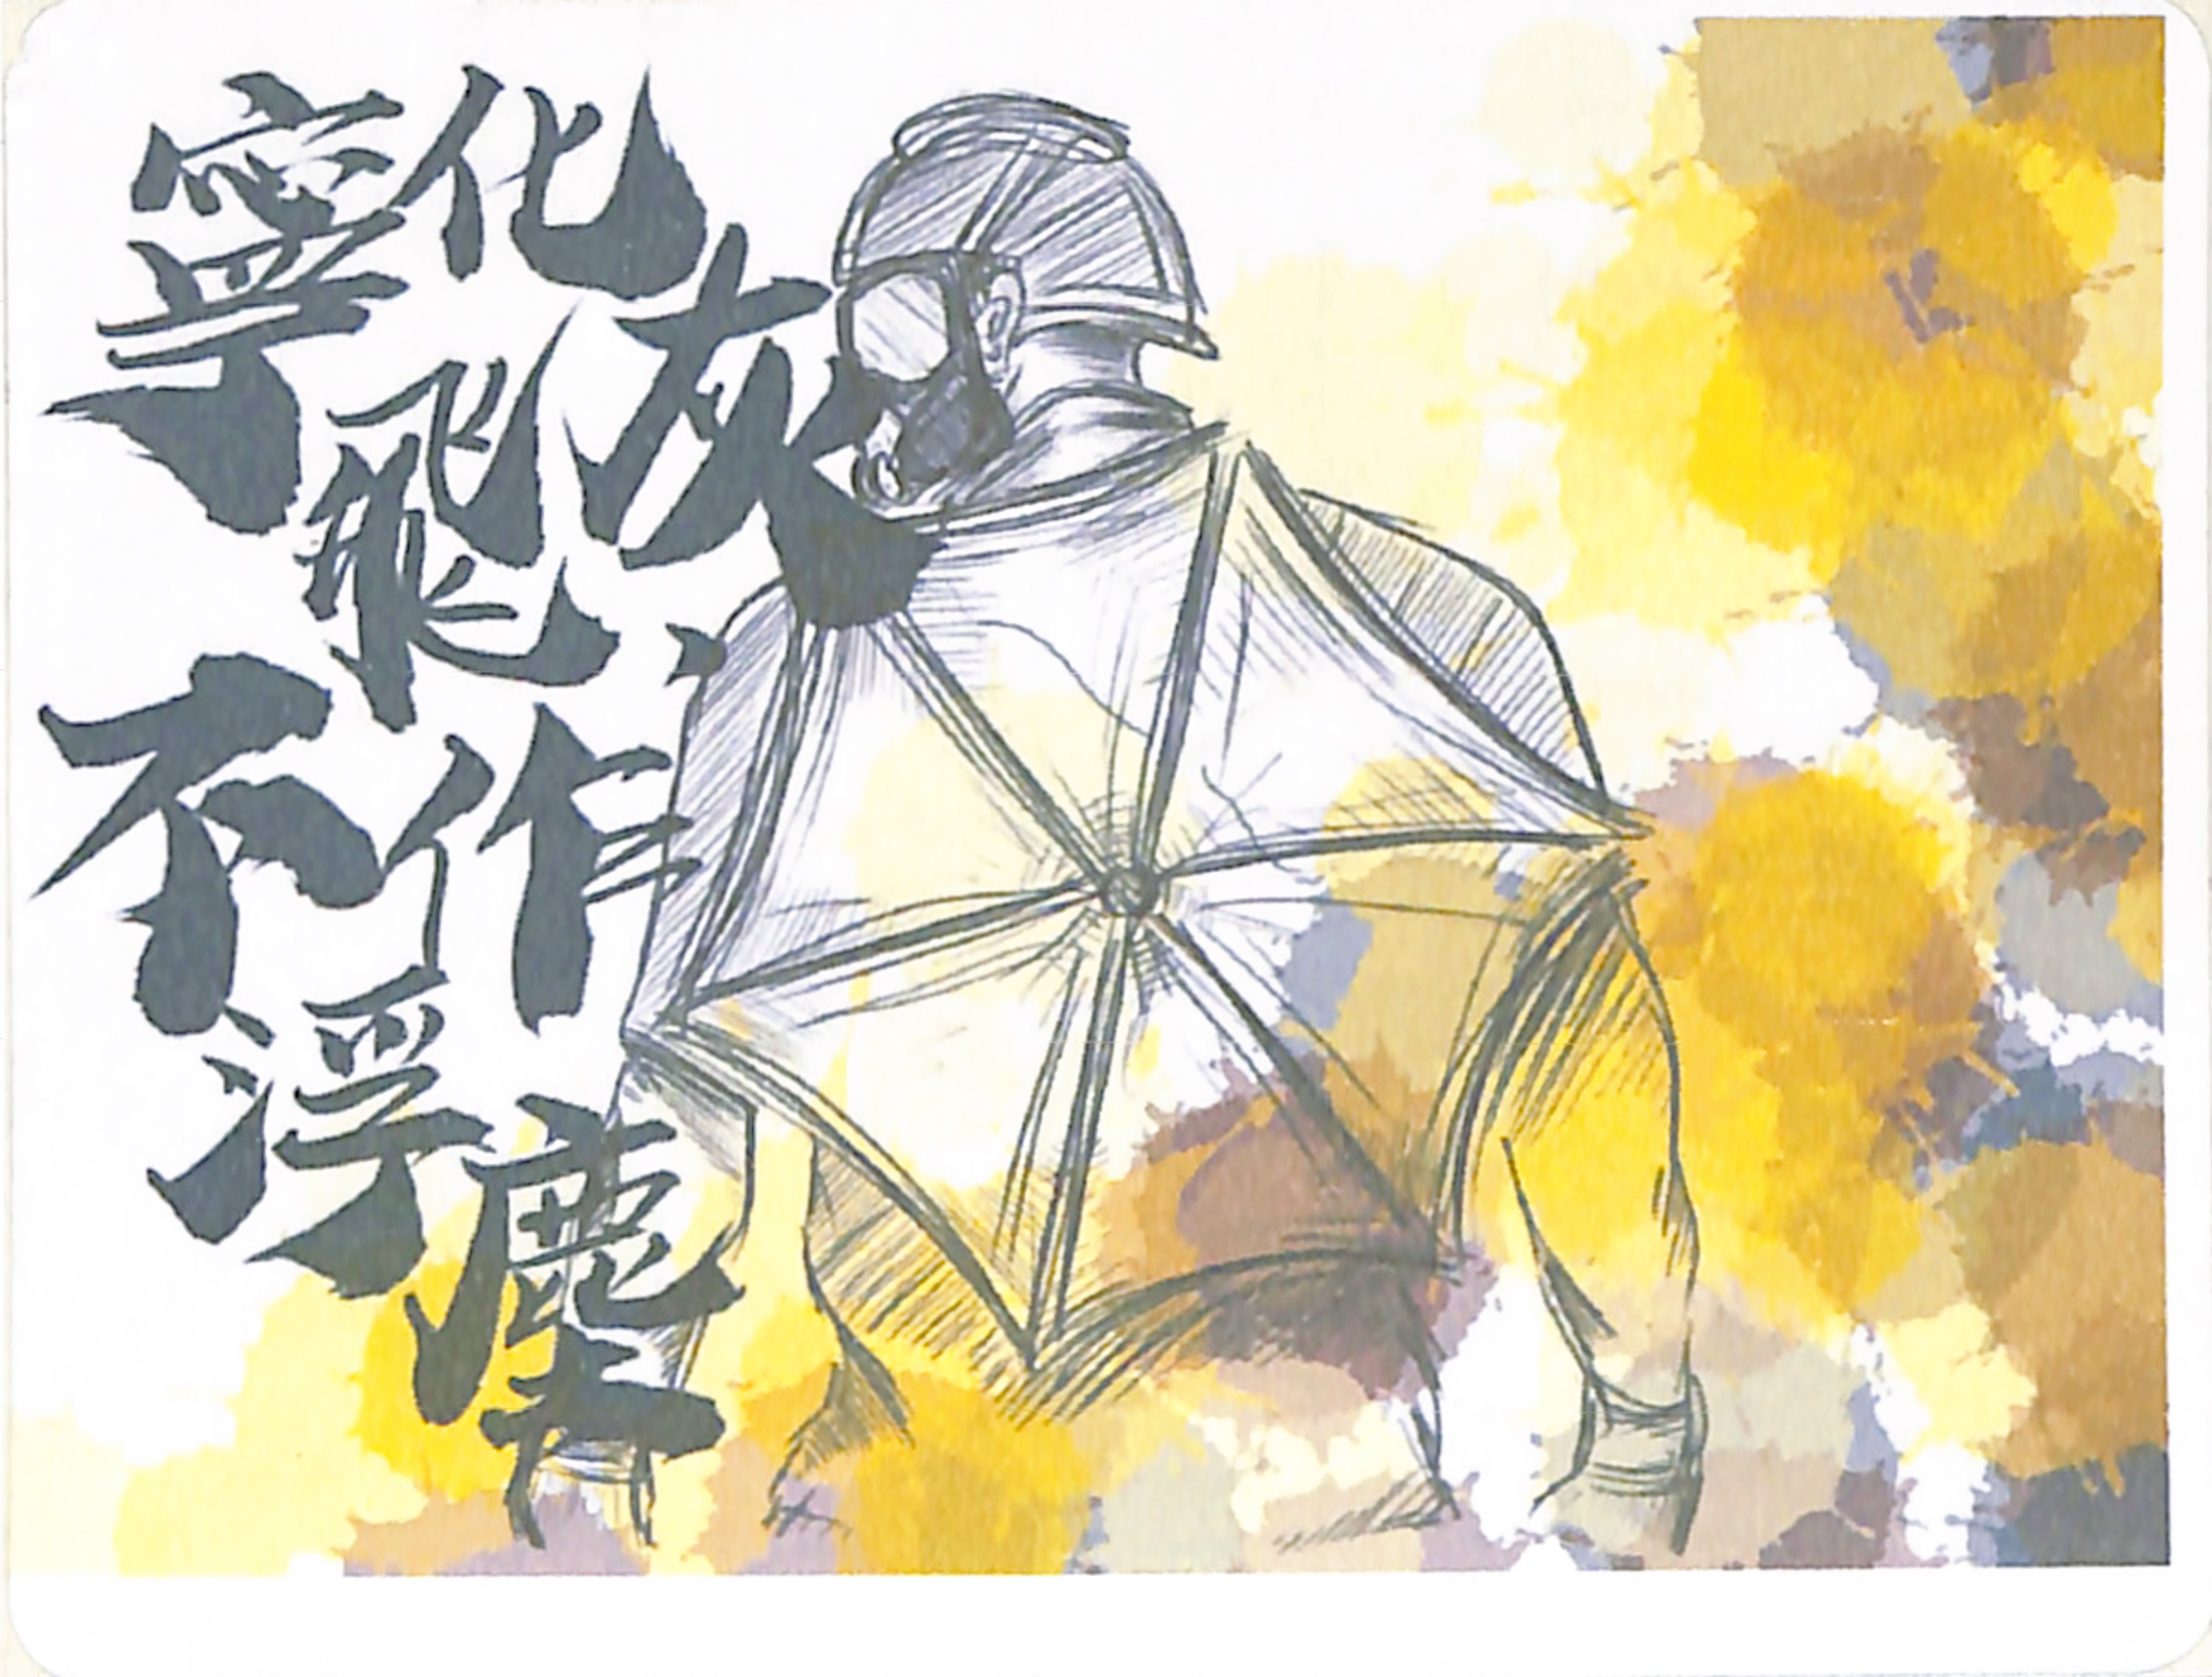 寧化飛灰
不作浮塵